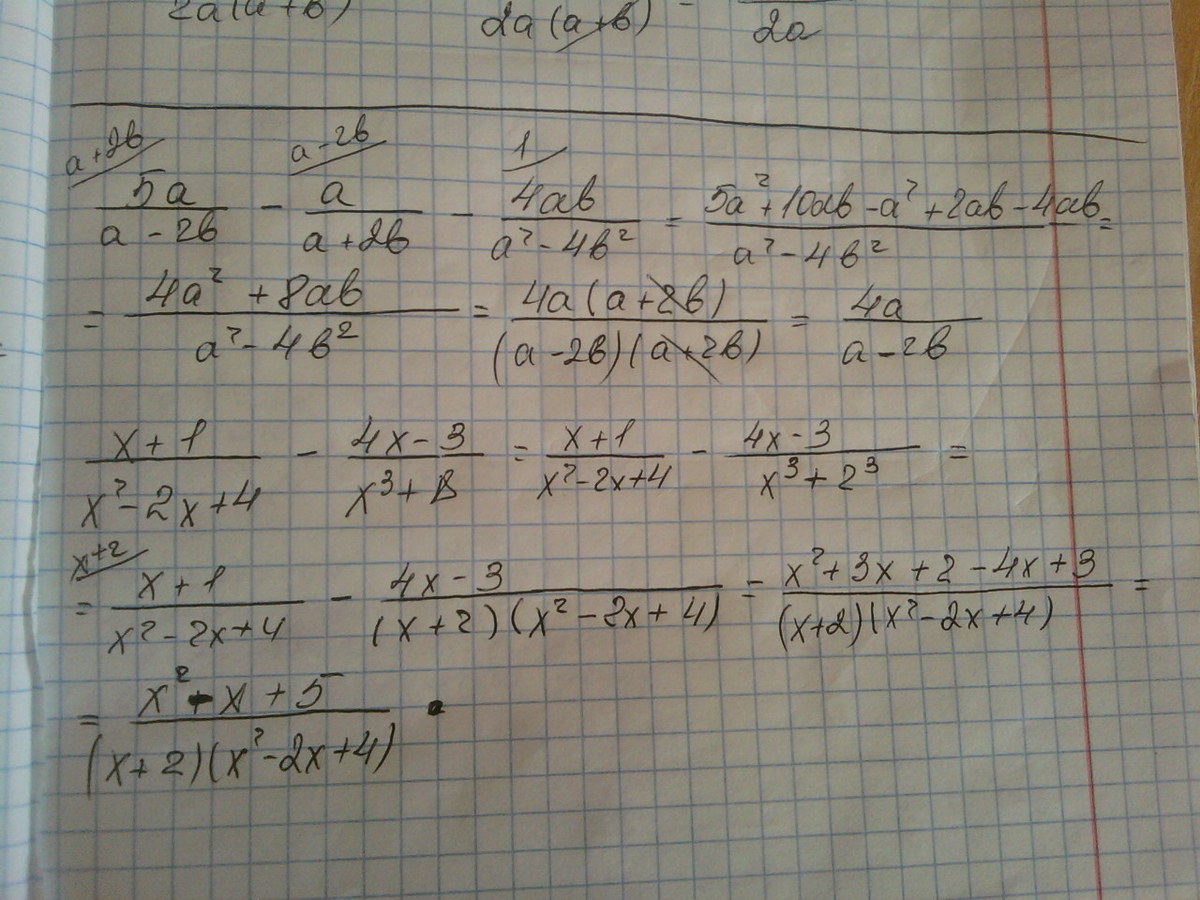 2a(a+b) 2a(a+b) - 2a
a+2b a-2b 1
5a/(a-2b) - a/(a+2b) - 4ab/(a²-4b²) = (5a²+10ab-a²+2ab-4ab)/(a²-4b²) =
= (4a²+8ab)/(a²-4b²) = 4a(a+2b)/((a-2b)(a+2b)) = 4a/(a-2b)
(x+1)/(x²-2x+4) - (4x-3)/(x³+8) = (x+1)/(x²-2x+4) - (4x-3)/(x³+2³) =
x+2
= (x+1)/(x²-2x+4) - (4x-3)/((x+2)(x²-2x+4)) = (x²+3x+2-4x+3)/((x+2)(x²-2x+4)) =
= (x²-x+5)/((x+2)(x²-2x+4)).